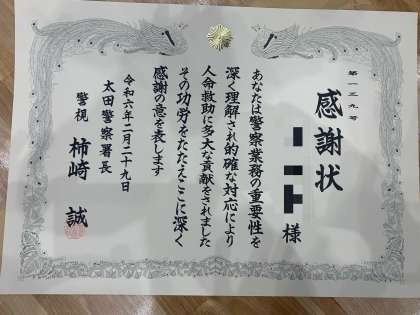 第一三九号
感謝状
様
あなたは警察業務の重要性を
深く理解され的確な対応により
人命救助に多大な貢献をされました
その功労をたたえここに深く
感謝の意を表します
令和六年二月二十九日
太田警察署長
警視 柿崎 誠